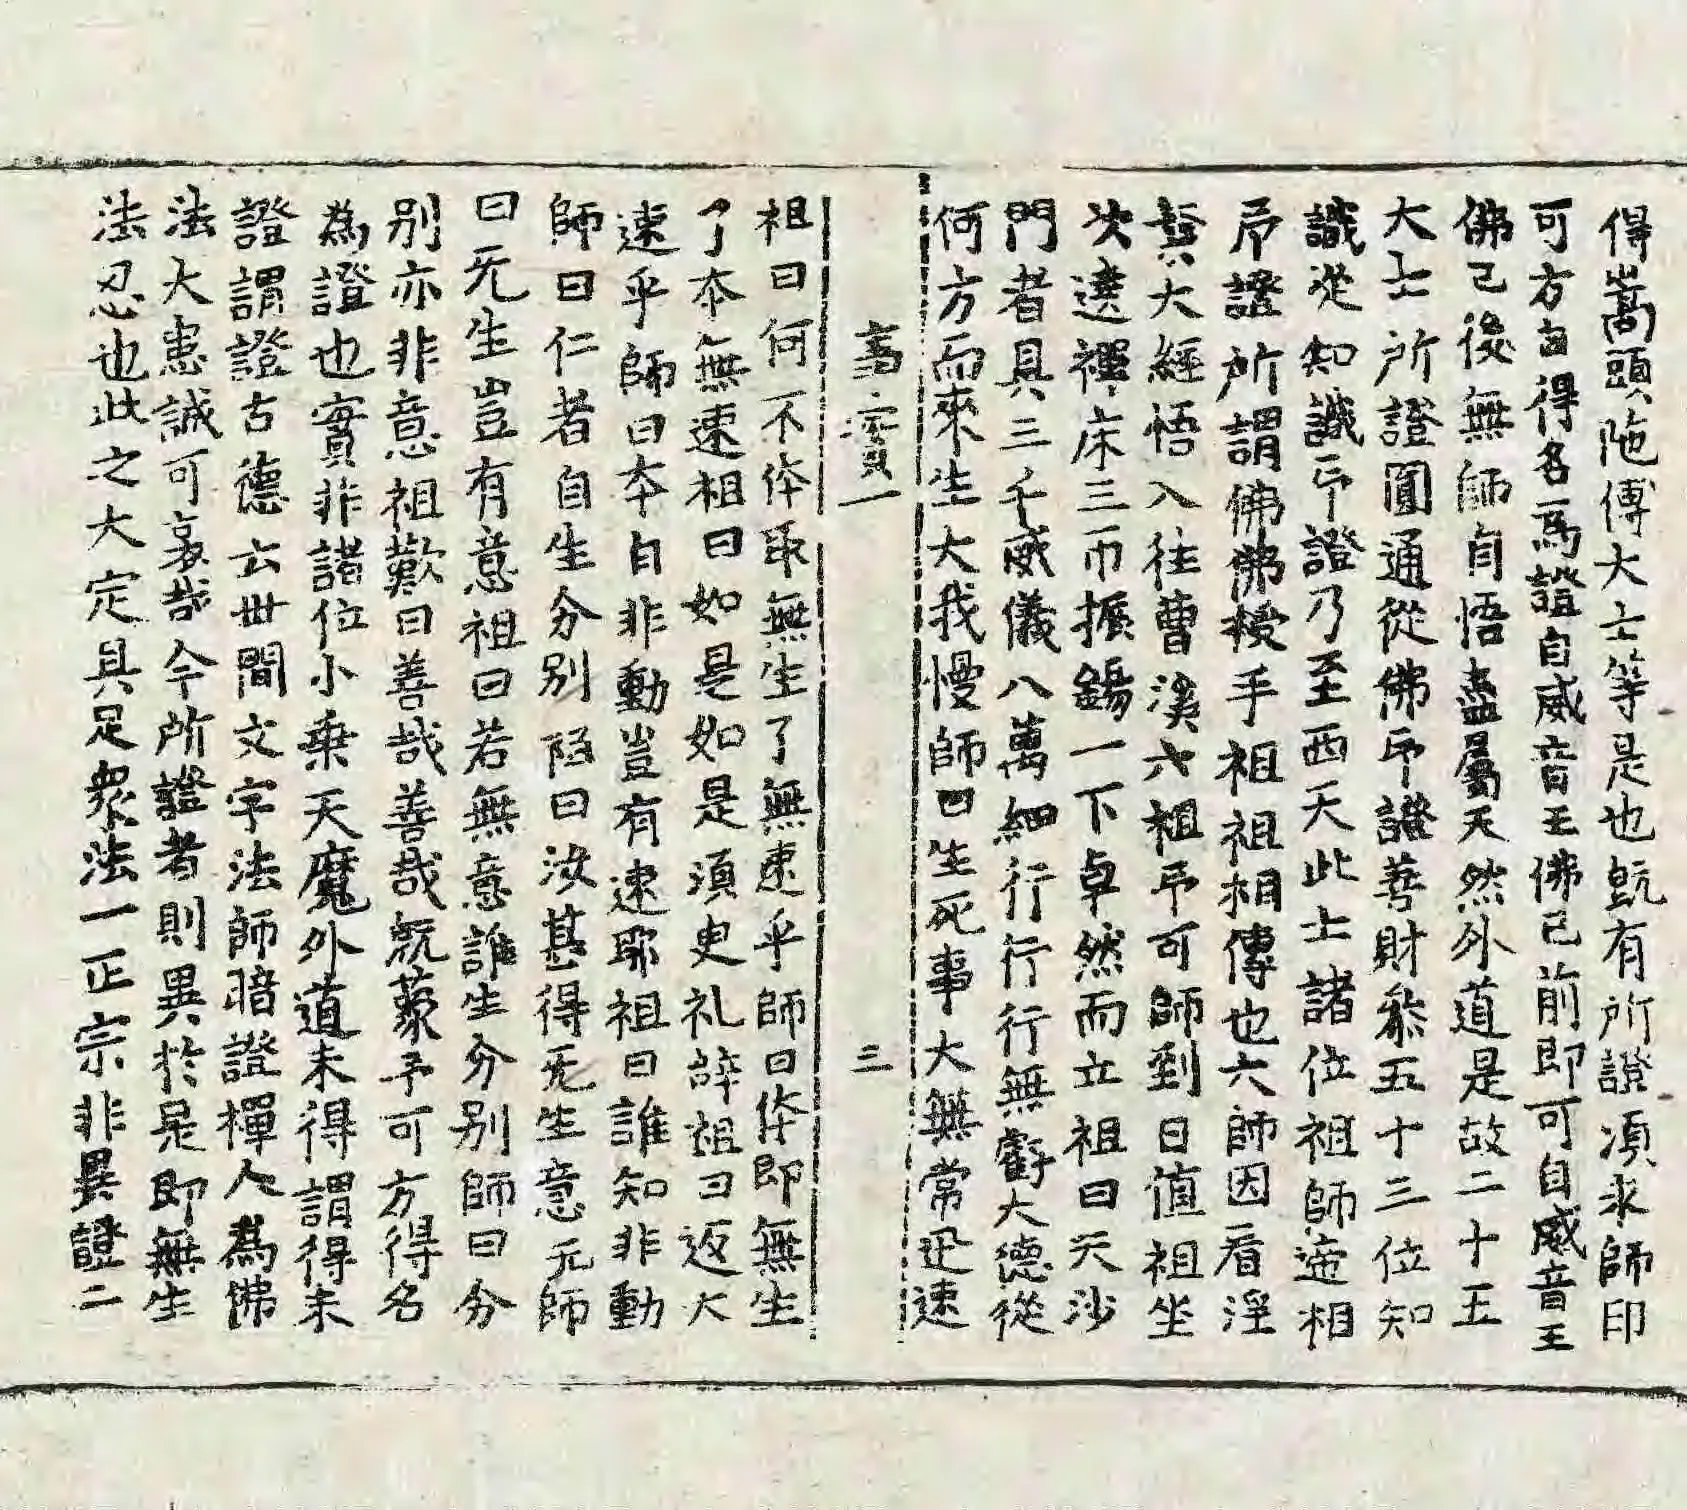 得嵩頭陁傅大士等是也旣有所證湏求師印
可方自得名爲證自威音王佛已前即可自威音王
佛已後無師自悟盡屬天然外道是故二十五
大士所證圓通從佛印證善財叅五十三位知
識從知識印證乃至西天此土諸位祖師遞相
印證所謂佛佛授手祖祖相傳也六師因看涅
槃大經悟入往曹溪六祖印可師到日值祖坐
次遶禪床三帀振錫一下卓然而立祖曰夫沙
門者具三千威儀八萬細行行行無虧大德從
何方而來生大我慢師曰生死事大無常迅速
事實一 三
祖曰何不体取無生了無速乎師曰体即無生
了本無速祖曰如是如是湏臾礼辝祖曰返大
速乎師曰本自非動豈有速耶祖曰誰知非動
師曰仁者自生分別祖曰汝甚得无生意无師
曰无生豈有意祖曰若無意誰生分別師曰分
別亦非意祖歎曰善哉善哉旣蒙予可方得名
為證也實非諸位小乗天魔外道未得謂得未
證謂證古德云世間文字法師暗證禪人為佛
法大患誠可哀哉今所證者則異於是即無生
法忍也此之大定具足衆法一正宗非異證二